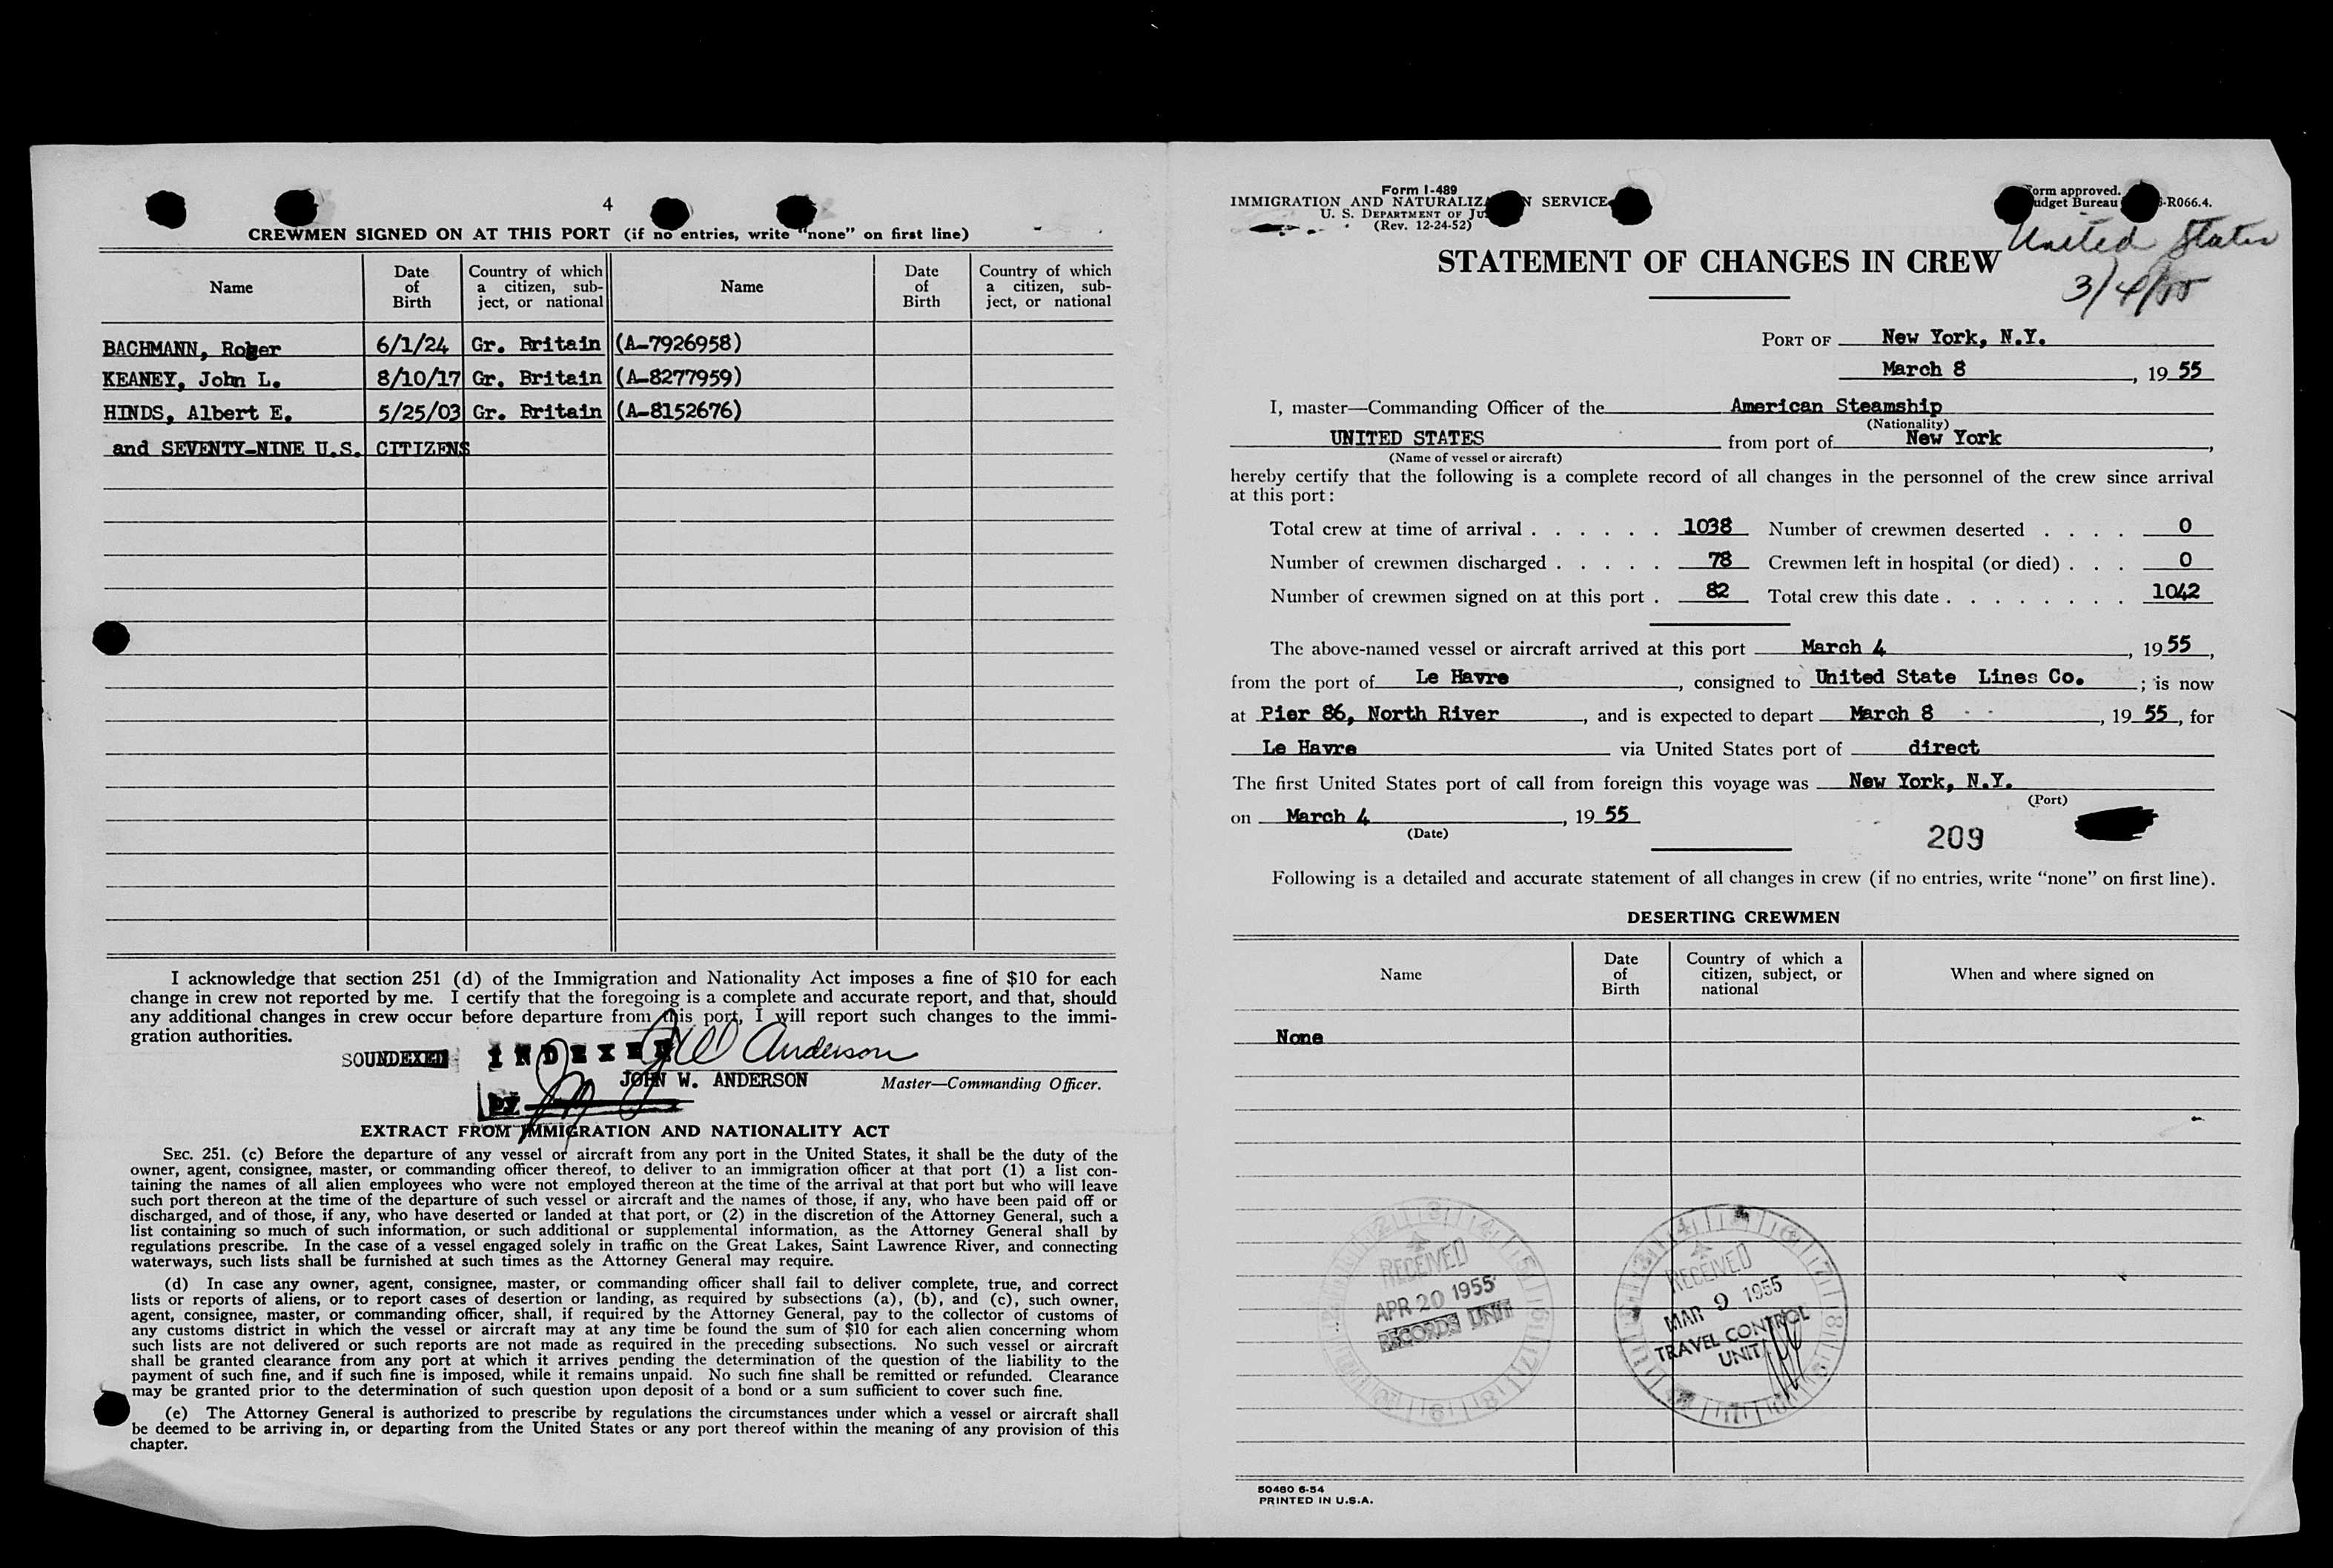 4
CREWMEN SIGNED ON AT THIS PORT (if no entries, write "none" on first line)
Name
Date of Birth
Country of which a citizen, subject, or national
Name
Date of Birth
Country of which a citizen, subject, or national
BACHMANN, Roger 6/1/24 Gr. Britain (A-7926958)
KEANEY, John L. 8/10/17 Gr. Britain (A-8277959)
HINDS, Albert E. 5/25/03 Gr. Britain (A-8152676)
and SEVENTY-NINE U.S. CITIZENS
I acknowledge that section 251 (d) of the Immigration and Nationality Act imposes a fine of $10 for each
change in crew not reported by me. I certify that the foregoing is a complete and accurate report, and that, should
any additional changes in crew occur before departure from this port, I will report such changes to the immi-
gration authorities.
SOUNDEXED INDEXED JW Anderson
JOHN W. ANDERSON Master—Commanding Officer.
by
EXTRACT FROM IMMIGRATION AND NATIONALITY ACT
SEC. 251. (c) Before the departure of any vessel or aircraft from any port in the United States, it shall be the duty of the
owner, agent, consignee, master, or commanding officer thereof, to deliver to an immigration officer at that port (1) a list con-
taining the names of all alien employees who were not employed thereon at the time of the arrival at that port but who will leave
such port thereon at the time of the departure of such vessel or aircraft and the names of those, if any, who have been paid off or
discharged, and of those, if any, who have deserted or landed at that port, or (2) in the discretion of the Attorney General, such a
list containing so much of such information, or such additional or supplemental information, as the Attorney General shall by
regulations prescribe. In the case of a vessel engaged solely in traffic on the Great Lakes, Saint Lawrence River, and connecting
waterways, such lists shall be furnished at such times as the Attorney General may require.
(d) In case any owner, agent, consignee, master, or commanding officer shall fail to deliver complete, true, and correct
lists or reports of aliens, or to report cases of desertion or landing, as required by subsections (a), (b), and (c), such owner,
agent, consignee, master, or commanding officer, shall, if required by the Attorney General, pay to the collector of customs of
any customs district in which the vessel or aircraft may at any time be found the sum of $10 for each alien concerning whom
such lists are not delivered or such reports are not made as required in the preceding subsections. No such vessel or aircraft
shall be granted clearance from any port at which it arrives pending the determination of the question of the liability to the
payment of such fine, and if such fine is imposed, while it remains unpaid. No such fine shall be remitted or refunded. Clearance
may be granted prior to the determination of such question upon deposit of a bond or a sum sufficient to cover such fine.
(e) The Attorney General is authorized to prescribe by regulations the circumstances under which a vessel or aircraft shall
be deemed to be arriving in, or departing from the United States or any port thereof within the meaning of any provision of this
chapter.
Form I-489
IMMIGRATION AND SERVICE
U. S. DEPARTMENT OF
(Rev. 12-24-52)
approved.
Bureau -R066.4.
United States
3/4/55
STATEMENT OF CHANGES IN CREW
PORT OF New York, N.Y.
March 8, 19 55
I, master—Commanding Officer of the American Steamship
(Nationality)
UNITED STATES from port of New York,
(Name of vessel or aircraft)
hereby certify that the following is a complete record of all changes in the personnel of the crew since arrival
at this port:
Total crew at time of arrival . . . . . . 1038 Number of crewmen deserted . . . . 0
Number of crewmen discharged . . . . . 78 Crewmen left in hospital (or died) . . . 0
Number of crewmen signed on at this port . 82 Total crew this date . . . . . . . . 1042
The above-named vessel or aircraft arrived at this port March 4, 19 55,
from the port of Le Havre, consigned to United State Lines Co. ; is now
at Pier 86, North River, and is expected to depart March 8, 19 55, for
Le Havre via United States port of direct
The first United States port of call from foreign this voyage was New York, N.Y.
(Port)
on March 4, 19 55
(Date)
209
Following is a detailed and accurate statement of all changes in crew (if no entries, write "none" on first line).
DESERTING CREWMEN
Name
Date of Birth
Country of which a citizen, subject, or national
When and where signed on
None
RECEIVED
APR 20 1955
RECORDS UNIT
RECEIVED
MAR 9 1955
TRAVEL CONTROL
UNIT
50480 6-54
PRINTED IN U.S.A.